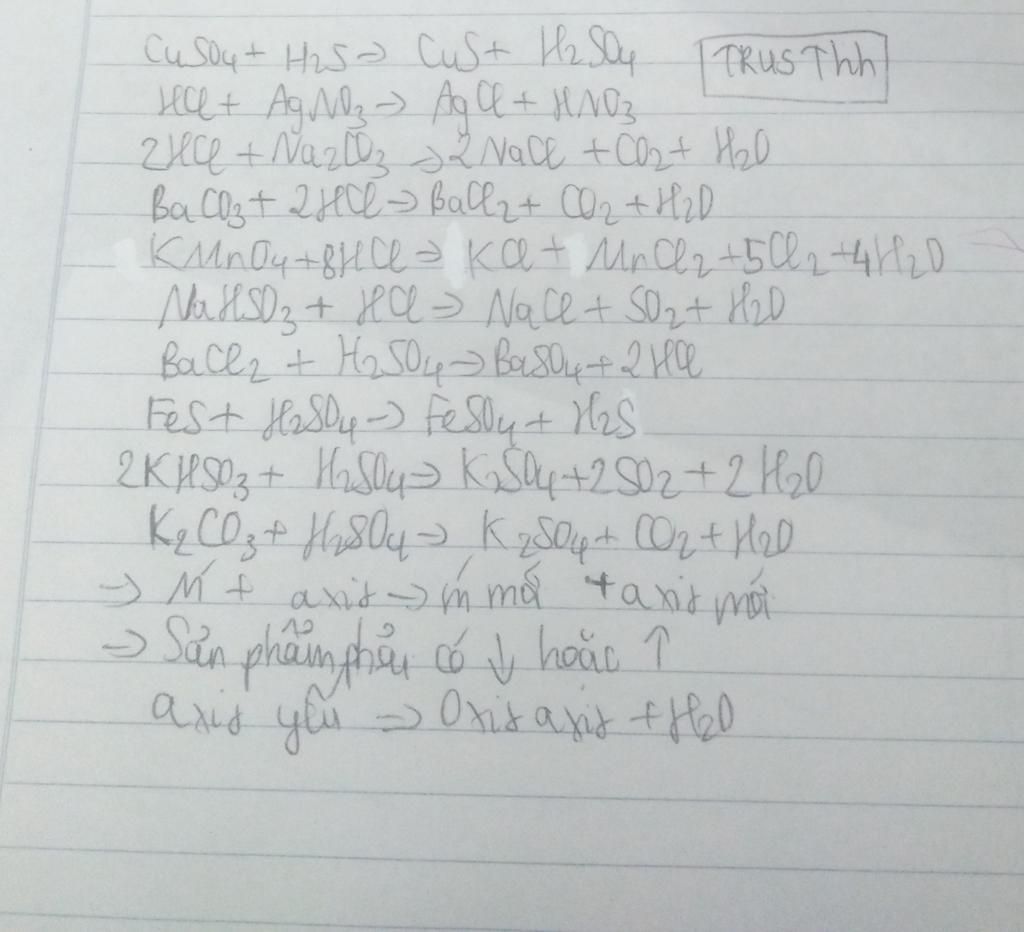 CuSO4 + H2S → CuS + H2SO4
TRUSThh
HCl + AgNO3 → AgCl + HNO3
2HCl + Na2CO3 → 2NaCl + CO2 + H2O
BaCO3 + 2HCl → BaCl2 + CO2 + H2O
KMnO4 + 8HCl → KCl + MnCl2 + 5Cl2 + 4H2O
NaHSO3 + HCl → NaCl + SO2 + H2O
BaCl2 + H2SO4 → BaSO4 + 2HCl
FeS + H2SO4 → FeSO4 + H2S
2KHSO3 + H2SO4 → K2SO4 + 2SO2 + 2H2O
K2CO3 + H2SO4 → K2SO4 + CO2 + H2O
⇒ Ḿ + axit → ḿ mới + axit mới
⇒ Sản phẩm phải có ↓ hoặc ↑
axit yếu ⇒ Oxit axit + H2O